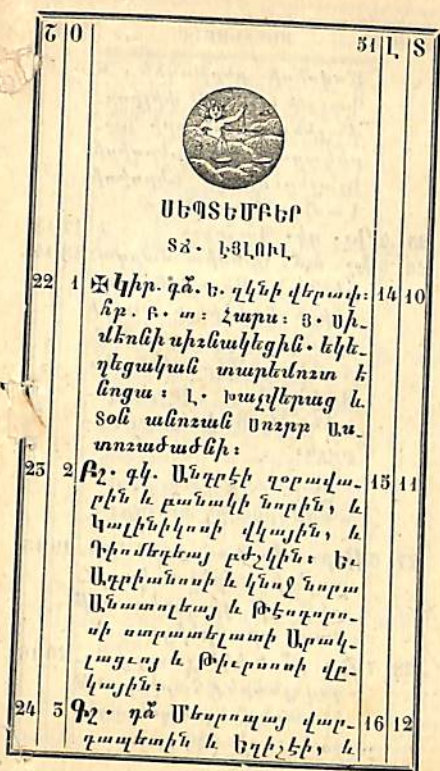 Շ Օ 51 Լ Տ
ՍԵՊՏԵՄԲԵՐ
ՏՃ. ԷՅԼՈՒԼ
22 1 ✠ Կիր. գձ. Ե. զկնի վերափ: 14 10
հր. Բ. տ: Հարս: Յ. Սի-
մէոնի սիւնակեցին. եկե-
ղեցական տարեմուտ է
նոցա: Լ. խաչվերաց և
Տօն անուան Սուրբ Աս-
տուածածնի:
23 2 Բշ. գկ. Անդրէի զօրավա- 15 11
րին և բանակի նորին, և
Կալինիկոսի վկային, և
Դիոմեդեայ բժշկին: Եւ
Ադրիանոսի և կնոջ նորա
Անատոլեայ և Թէոդորո-
սի ստրատելատի Արակ-
լացւոյ և Թիւրսոսի վը-
կային:
24 3 Գշ. դձ Մեսրոպայ վար- 16 12
դապետին և Եղիշէի, և